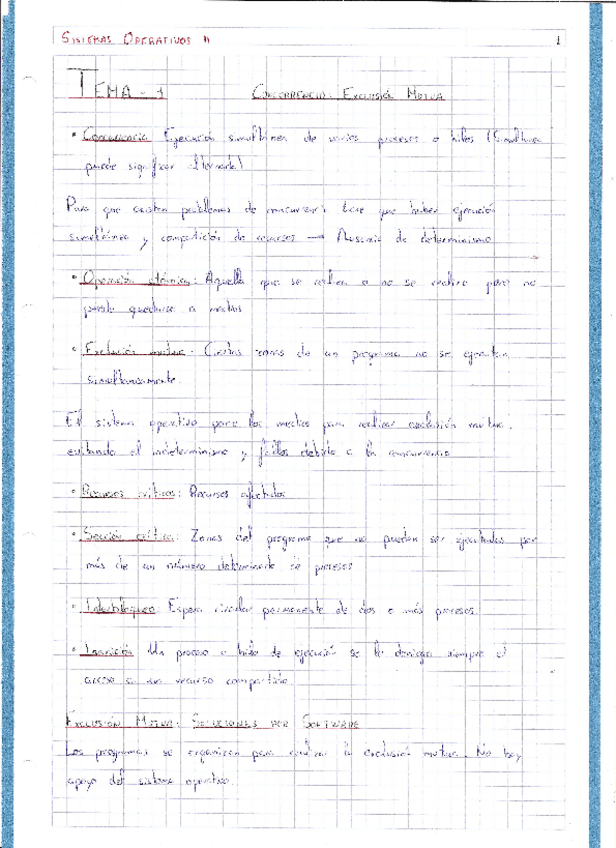 SISTEMAS OPERATIVOS II 1
TEMA - 1 CONCURRENCIA: EXCLUSIÓN MUTUA
• Concurrencia: Ejecución simultánea de varios procesos o hilos (Simultánea
puede significar alternada)
Para que existan problemas de concurrencia tiene que haber ejecución
simultánea y competición de recursos → Ausencia de determinismo
• Operación atómica: Aquella que se realiza o no se realiza pero no
puede quedarse a medias
• Exclusión mutua: Ciertas zonas de un programa no se ejecutan
simultáneamente
El sistema operativo pone los medios para realizar exclusión mutua,
evitando el indeterminismo y fallos debido a la concurrencia
• Recursos críticos: Recursos afectados
• Sección crítica: Zonas del programa que no pueden ser ejecutadas por
más de un número determinado de procesos
• Interbloqueo: Espera circular permanente de dos o más procesos
• Inanición Un proceso o hilo de ejecución se le deniega siempre el
acceso a un recurso compartido
EXCLUSIÓN MUTUA: SOLUCIONES POR SOFTWARE
Los programas se organizan para realizar la exclusión mutua. No hay
apoyo del sistema operativo.